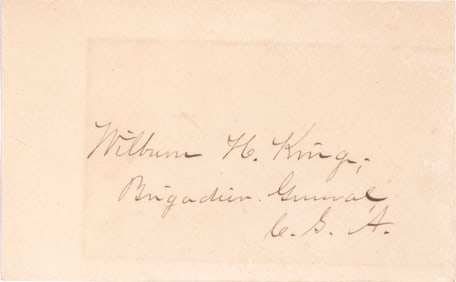 Wilburn H. King,
Brigadier. General,
C. S. A.